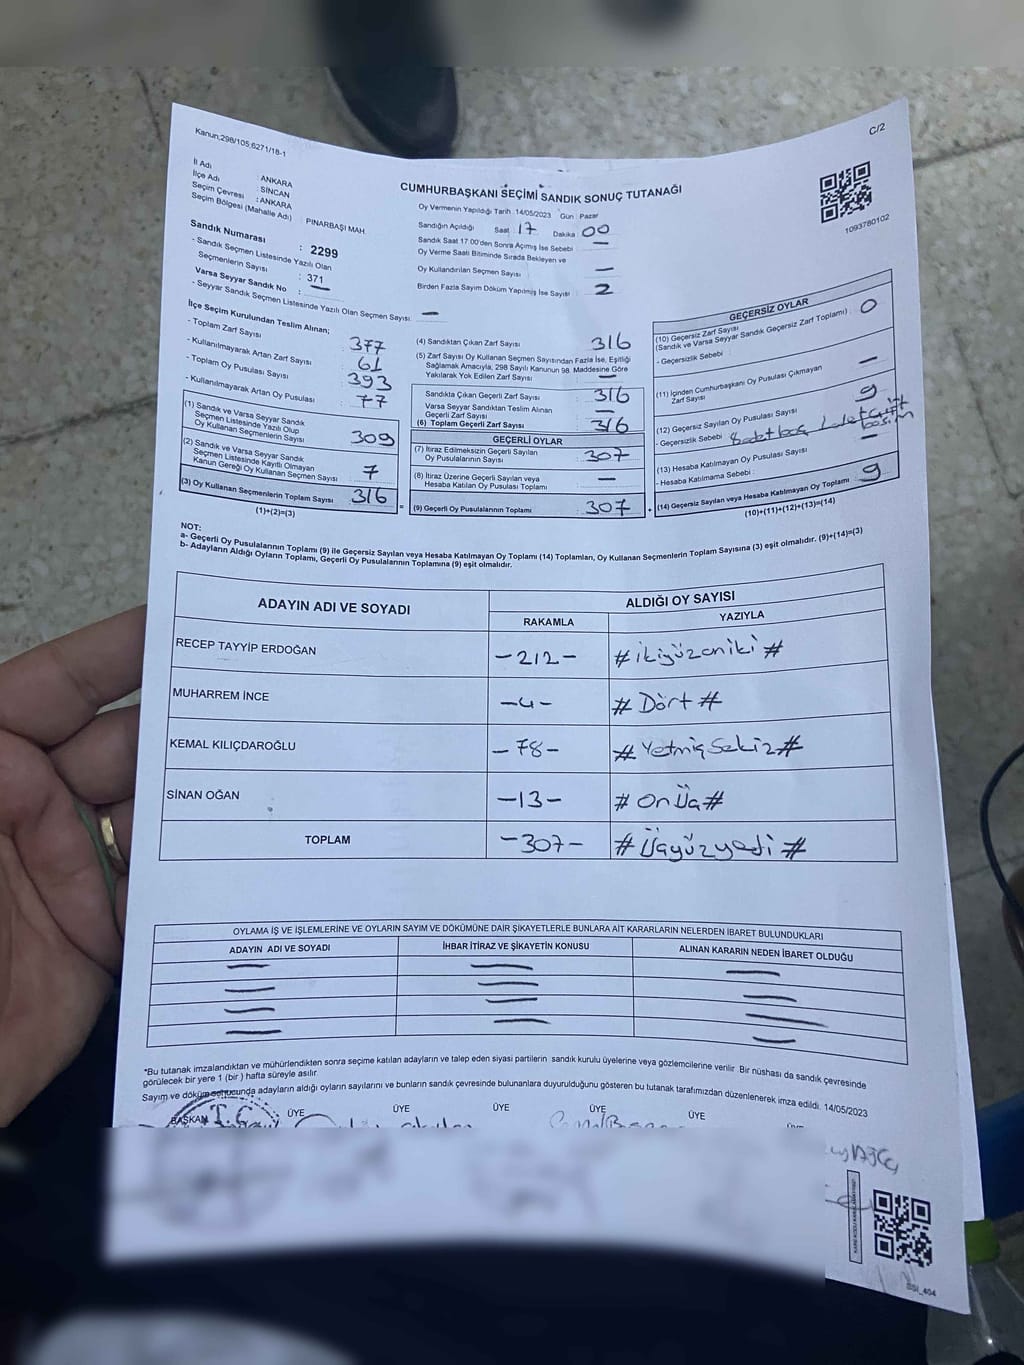 Kanun;298/105;6271/18-1
C/2
CUMHURBAŞKANI SEÇİMİ SANDIK SONUÇ TUTANAĞI
İl Adı : ANKARA
İlçe Adı : SİNCAN
Seçim Çevresi : ANKARA
Seçim Bölgesi (Mahalle Adı) : PINARBAŞI MAH.
Sandık Numarası : 2299
- Sandık Seçmen Listesinde Yazılı Olan
Seçmenlerin Sayısı : 371
Varsa Seyyar Sandık No : —
- Seyyar Sandık Seçmen Listesinde Yazılı Olan Seçmen Sayısı : —
Oy Vermenin Yapıldığı Tarih :14/05/2023 Gün : Pazar
Sandığın Açıldığı Saat : 17 Dakika : 00
Sandık Saat 17.00'den Sonra Açımış İse Sebebi : —
Oy Verme Saati Bitiminde Sırada Bekleyen ve
Oy Kullandırılan Seçmen Sayısı : —
Birden Fazla Sayım Döküm Yapılmış İse Sayısı : 2
1093780102
İlçe Seçim Kurulundan Teslim Alınan;
- Toplam Zarf Sayısı : 377
- Kullanılmayarak Artan Zarf Sayısı : 61
- Toplam Oy Pusulası Sayısı : 393
- Kullanılmayarak Artan Oy Pusulası : 77
(1) Sandık ve Varsa Seyyar Sandık
Seçmen Listesinde Yazılı Olup
Oy Kullanan Seçmenlerin Sayısı : 309
(2) Sandık ve Varsa Seyyar Sandık
Seçmen Listesinde Kayıtlı Olmayan
Kanun Gereği Oy Kullanan Seçmen Sayısı : 7
(3) Oy Kullanan Seçmenlerin Toplam Sayısı : 316
(1)+(2)=(3)
(4) Sandıktan Çıkan Zarf Sayısı : 316
(5) Zarf Sayısı Oy Kullanan Seçmen Sayısından Fazla İse, Eşitliği
Sağlamak Amacıyla, 298 Sayılı Kanunun 98. Maddesine Göre
Yakılarak Yok Edilen Zarf Sayısı : —
Sandıkta Çıkan Geçerli Zarf Sayısı : 316
Varsa Seyyar Sandıktan Teslim Alınan
Geçerli Zarf Sayısı : —
(6) Toplam Geçerli Zarf Sayısı : 316
GEÇERLİ OYLAR
(7) İtiraz Edilmeksizin Geçerli Sayılan
Oy Pusulalarının Sayısı : 307
(8) İtiraz Üzerine Geçerli Sayılan veya
Hesaba Katılan Oy Pusulası Toplamı : —
= (9) Geçerli Oy Pusulalarının Toplamı : 307 +
GEÇERSİZ OYLAR
(10) Geçersiz Zarf Sayısı
(Sandık ve Varsa Seyyar Sandık Geçersiz Zarf Toplamı) : 0
- Geçersizlik Sebebi :
(11) İçinden Cumhurbaşkanı Oy Pusulası Çıkmayan
Zarf Sayısı : —
(12) Geçersiz Sayılan Oy Pusulası Sayısı : 9
- Geçersizlik Sebebi
(13) Hesaba Katılmayan Oy Pusulası Sayısı : —
- Hesaba Katılmama Sebebi :
(14) Geçersiz Sayılan veya Hesaba Katılmayan Oy Toplamı : 9
(10)+(11)+(12)+(13)=(14)
NOT:
a- Geçerli Oy Pusulalarının Toplamı (9) ile Geçersiz Sayılan veya Hesaba Katılmayan Oy Toplamı (14) Toplamları, Oy Kullanan Seçmenlerin Toplam Sayısına (3) eşit olmalıdır. (9)+(14)=(3)
b- Adayların Aldığı Oyların Toplamı, Geçerli Oy Pusulalarının Toplamına (9) eşit olmalıdır.
ADAYIN ADI VE SOYADI ALDIĞI OY SAYISI
RAKAMLA YAZIYLA
RECEP TAYYİP ERDOĞAN -212- #ikiyüzoniki#
MUHARREM İNCE -4- #Dört#
KEMAL KILIÇDAROĞLU -78- #YetmişSekiz#
SİNAN OĞAN -13- #OnÜç#
TOPLAM -307- #Üçyüzyedi#
OYLAMA İŞ VE İŞLEMLERİNE VE OYLARIN SAYIM VE DÖKÜMÜNE DAİR ŞİKAYETLERLE BUNLARA AİT KARARLARIN NELERDEN İBARET BULUNDUKLARI
ADAYIN ADI VE SOYADI İHBAR İTİRAZ VE ŞİKAYETİN KONUSU ALINAN KARARIN NEDEN İBARET OLDUĞU
*Bu tutanak imzalandıktan ve mühürlendikten sonra seçime katılan adayların ve talep eden siyasi partilerin sandık kurulu üyelerine veya gözlemcilerine verilir. Bir nüshası da sandık çevresinde
görülecek bir yere 1 (bir ) hafta süreyle asılır.
Sayım ve döküm sonucunda adayların aldığı oyların sayılarını ve bunların sandık çevresinde bulunanlara duyurulduğunu gösteren bu tutanak tarafımızdan düzenlenerek imza edildi. 14/05/2023
BAŞKAN ÜYE ÜYE ÜYE ÜYE ÜYE
T.C.
SSİ_404